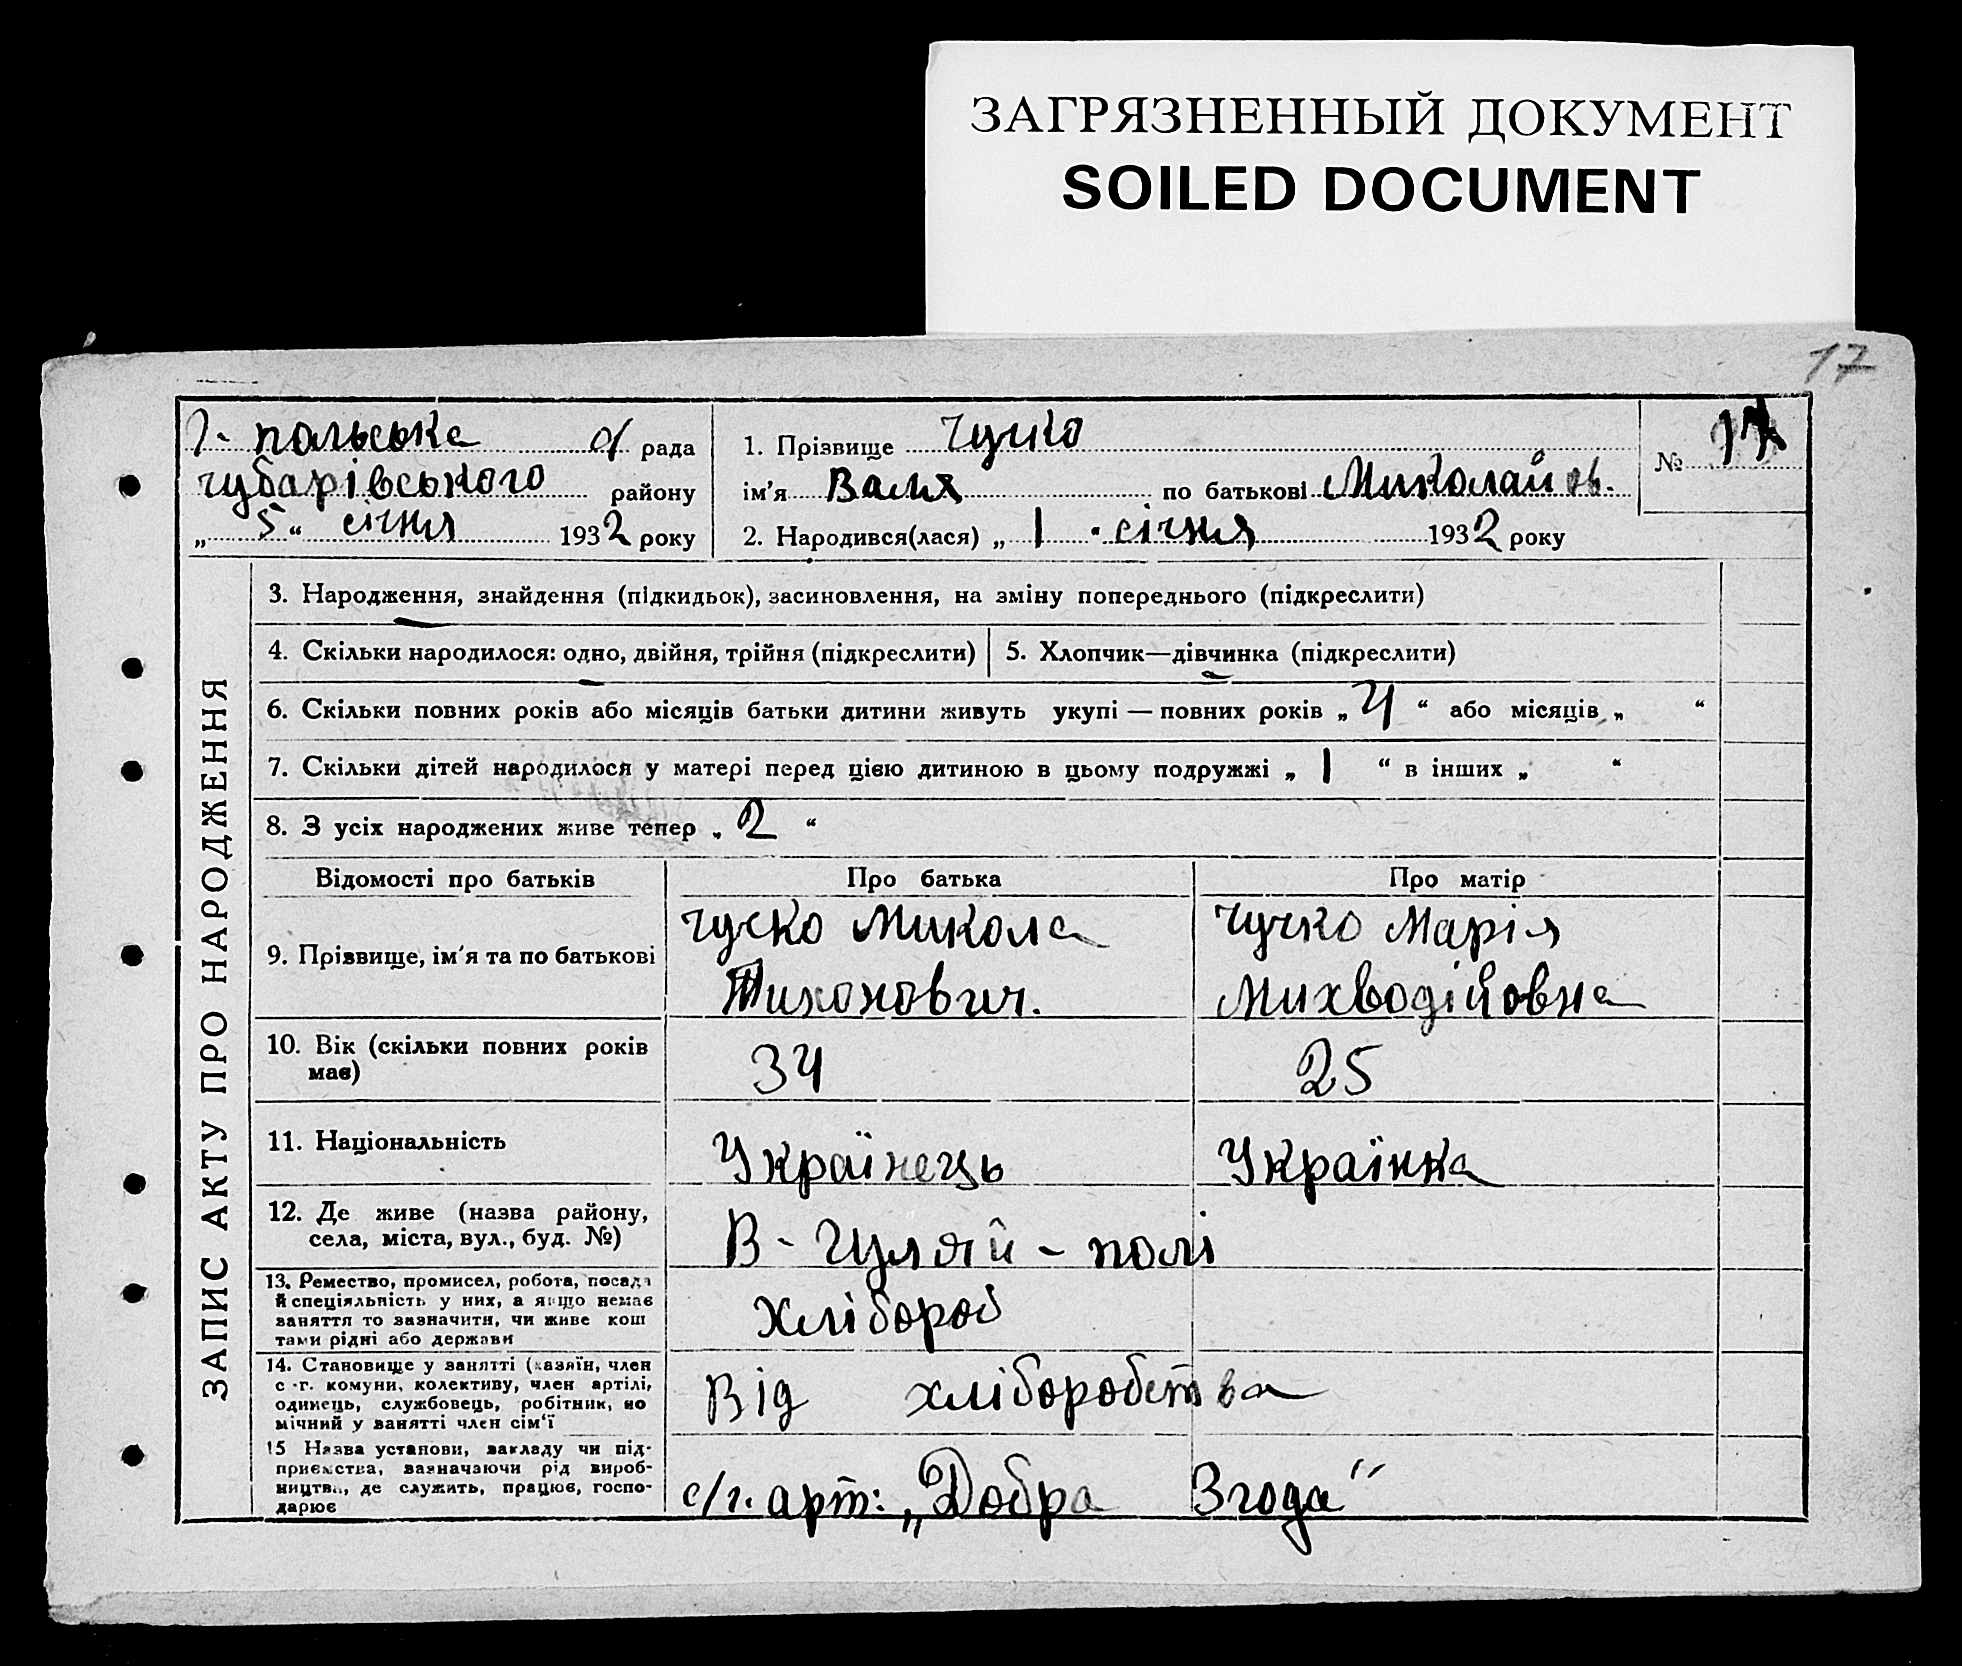 ЗАГРЯЗНЕННЫЙ ДОКУМЕНТ
SOILED DOCUMENT
17
Г- польська с/ рада
чубарівського району
„ 5 “ січня 1932 року
1. Прізвище Чучко
ім'я Валя по батькові Миколайов.
2. Народився(лася) „ 1 . січня 1932 року
№ 17
ЗАПИС АКТУ ПРО НАРОДЖЕННЯ
3. Народження, знайдення (підкидьок), засиновлення, на зміну попереднього (підкреслити)
4. Скільки народилося: одно, двійня, трійня (підкреслити)
5. Хлопчик—дівчинка (підкреслити)
6. Скільки повних років або місяців батьки дитини живуть укупі — повних років „ 4 “ або місяців „ “
7. Скільки дітей народилося у матері перед цією дитиною в цьому подружжі „ 1 “ в інших „ “
8. З усіх народжених живе тепер „ 2 “
Відомості про батьків
Про батька
Про матір
9. Прізвище, ім'я та по батькові
чучко Микола
Тихонович.
Чучко Марія
10. Вік (скільки повних років
має)
34
25
11. Національність
Українець
Українка
12. Де живе (назва району,
села, міста, вул., буд. №)
В- Гуляй - полі
13. Ремество, промисел, робота, посада
й спеціяльність у них, а якщо немає
заняття то зазначити, чи живе кош
тами рідні або держави
Хлібороб
14. Становище у занятті (хазяїн, член
с-г. комуни, колективу, член артілі,
одинець, службовець, робітник, по
мічний у занятті член сім'ї
Від хліборобства
15 Назва установи, закладу чи під-
приємства, зазначаючи рід вироб-
ництва, де служить, працює, госпо-
дарює
с/г. арт: „Добра Згода"